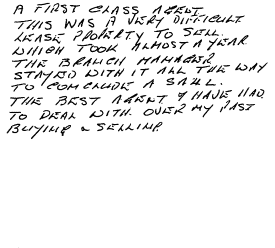 A FIRST CLASS AGENT
THIS WAS A VERY DIFFICULT
LEASE PROPERTY TO SELL.
WHICH TOOK ALMOST A YEAR
THE BRANCH MANAGER
STAYED WITH IT ALL THE WAY
TO CONCLUDE A SALL.
THE BEST AGENT I HAVE HAD
TO DEAL WITH. OVER MY PAST
BUYING & SELLING.